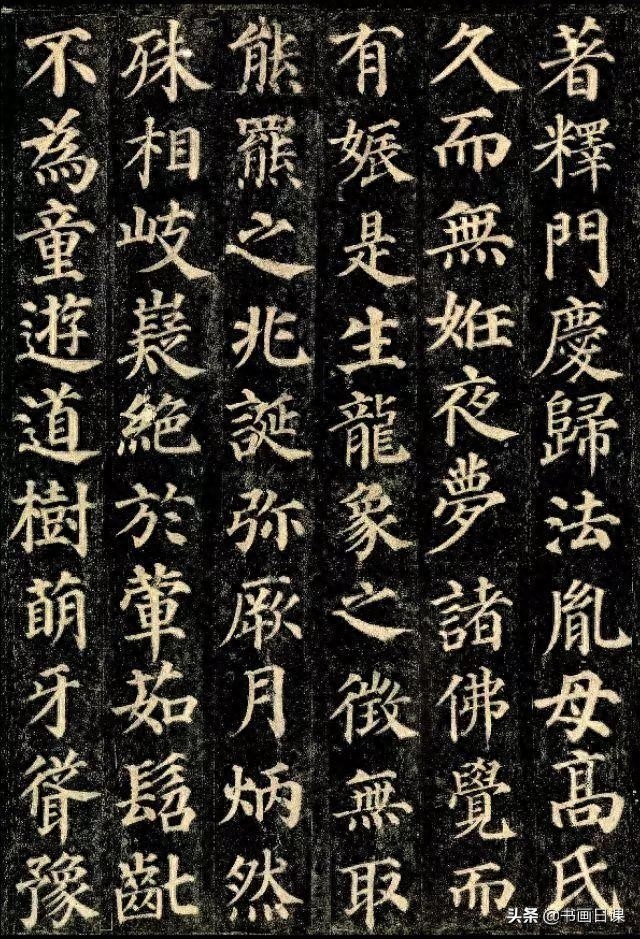 著釋門慶歸法胤母髙氏
久而無姙夜夢諸佛覺而
有娠是生龍象之徵無取
熊羆之兆誕弥厥月炳然
殊相岐嶷絶於葷茹髫齔
不為童遊道樹萌牙聳豫
头条 @书画日课